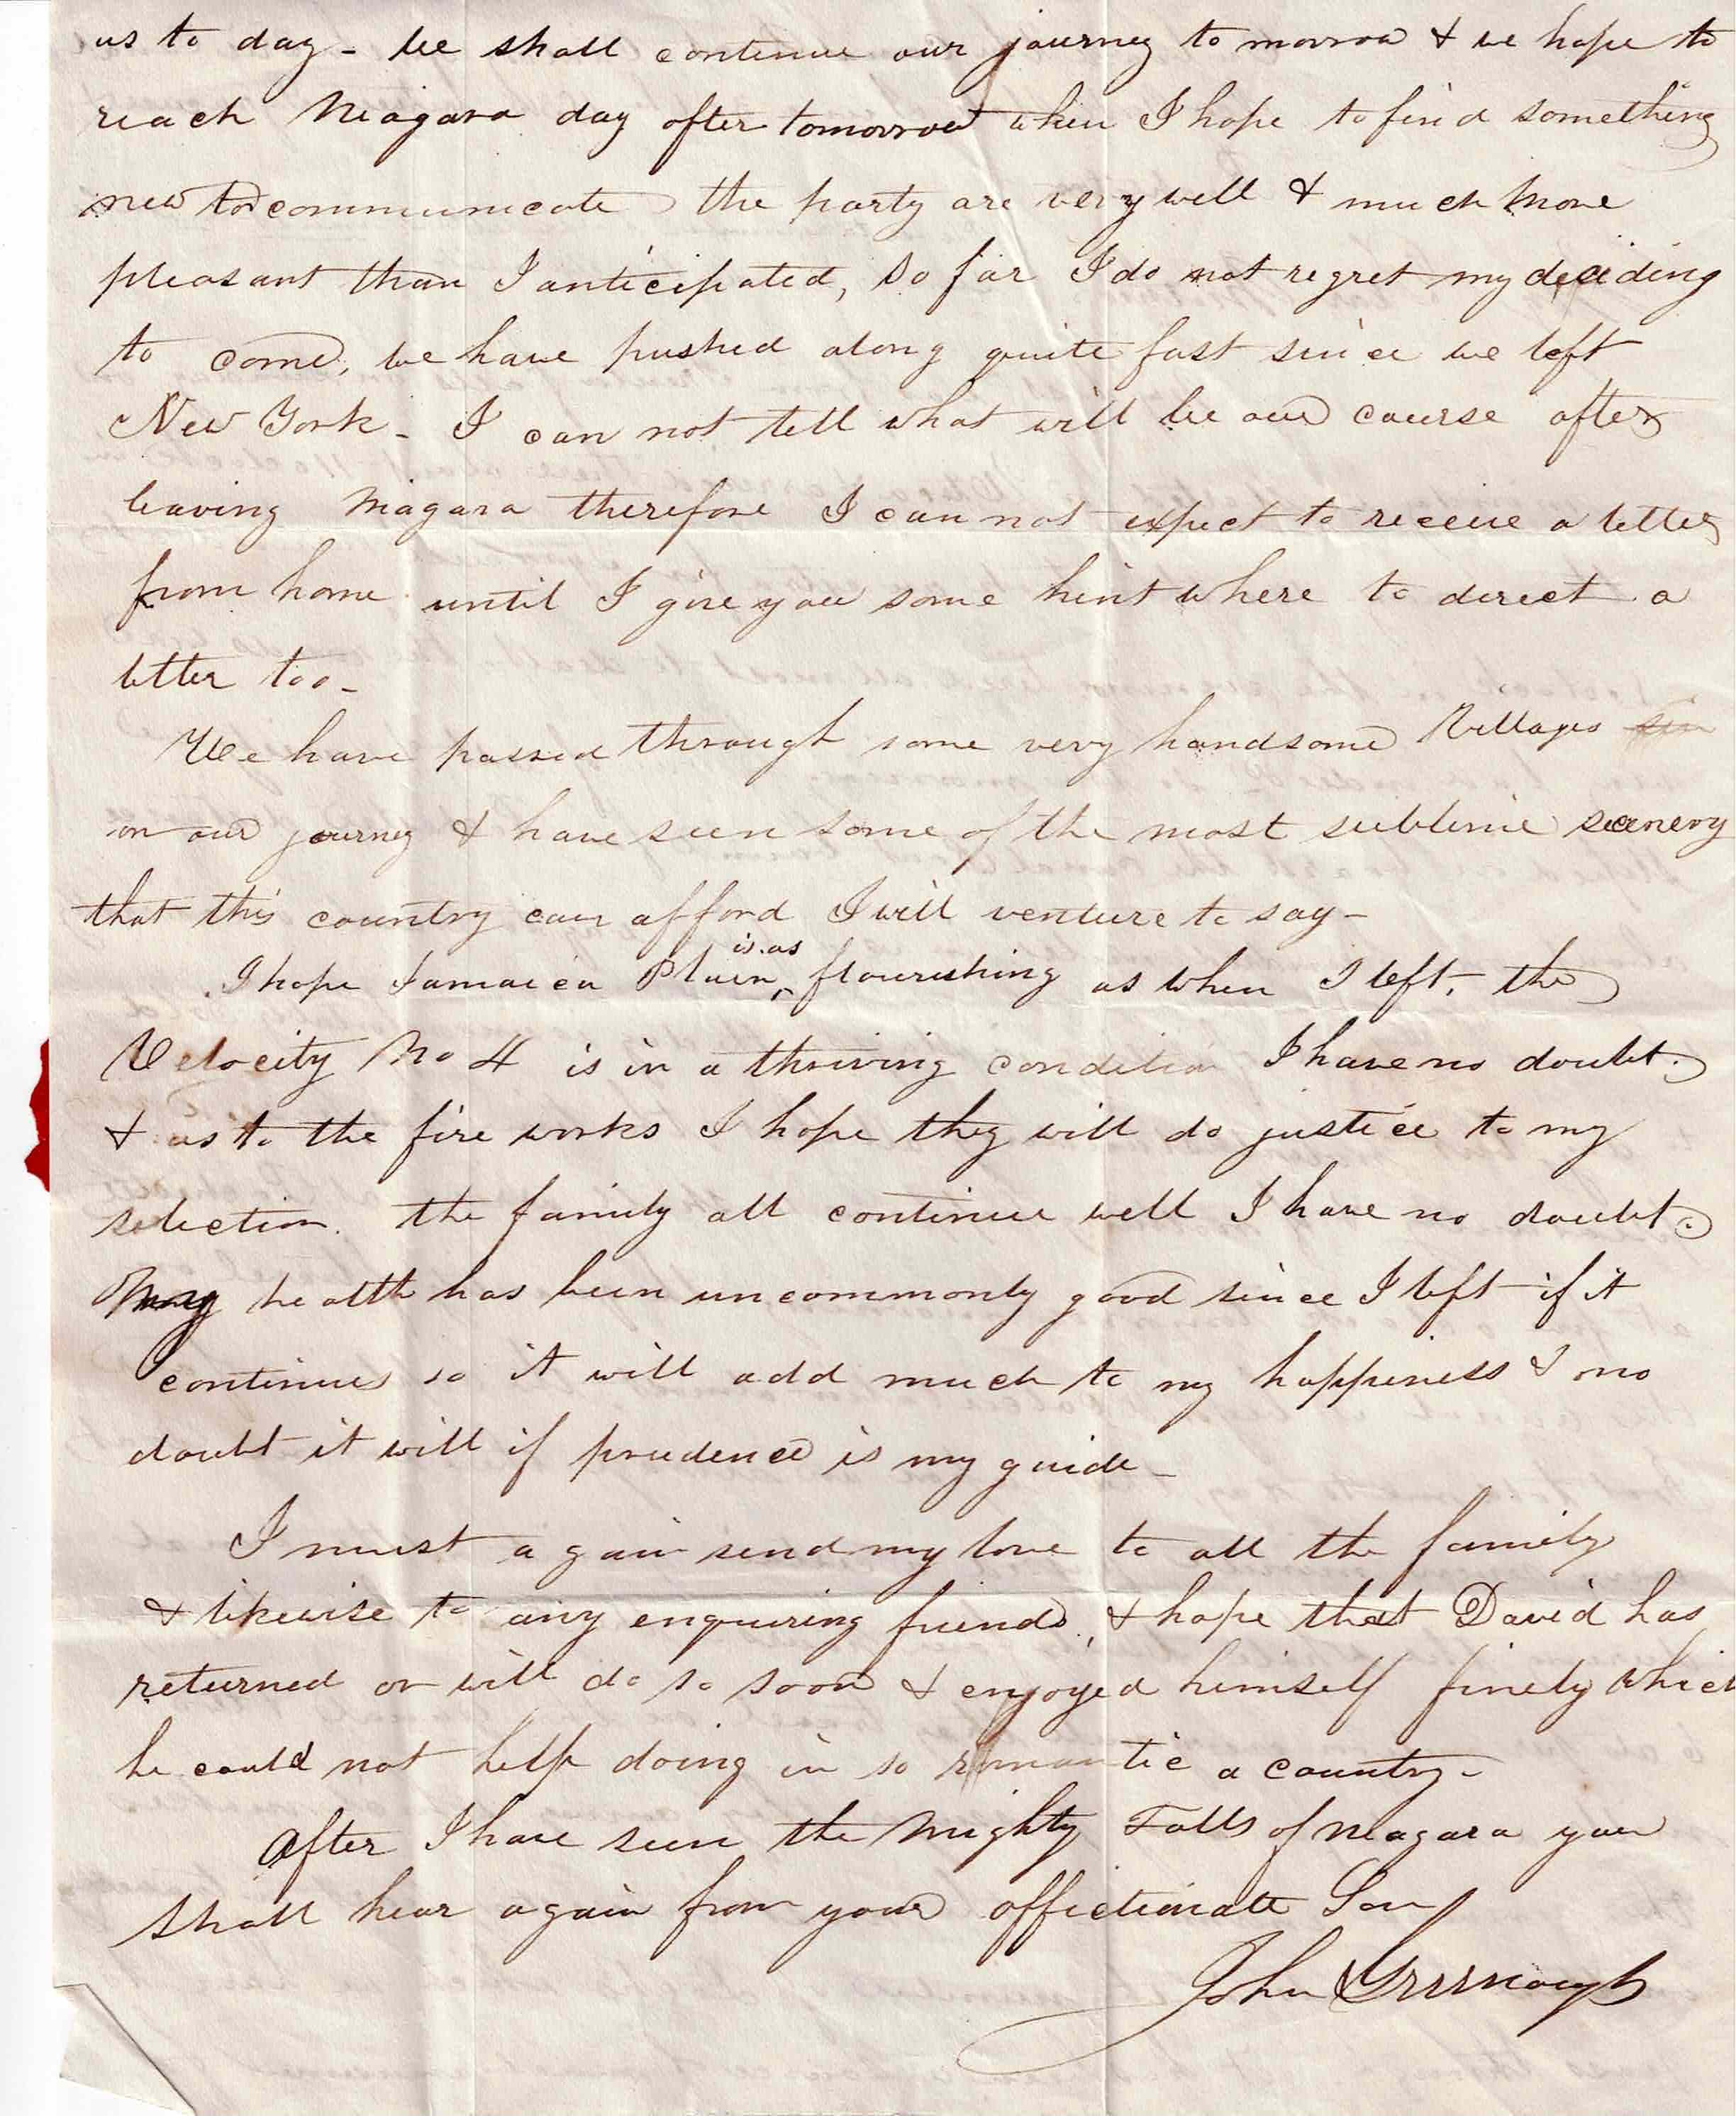 us to day - We shall continue our journey to morrow & we hope to
reach Niagara day after tomorrow when I hope to find something
new to communicate the party are very well & much more
pleasant than I anticipated, So far I do not regret my deciding
to come, we have pushed along quite fast since we left
New York - I can not tell what will be our course after
leaving Niagara therefore I can not expect to receive a letter
from home until I give you some hint where to direct a
letter too -
We have passed through some very handsome Villages
on our journey & have seen some of the most sublime scenery
that this country can afford I will venture to say -
I hope Jamaica Plain is as flourishing as when I left, the
Velocity No 4 is in a thriving condition I have no doubt.
& as to the fire works I hope they will do justice to my
selection. the family all continue well I have no doubt.
My health has been uncommonly good since I left if it
continues so it will add much to my happiness & no
doubt it will if prudence is my guide -
I must again send my love to all the family
& likewise to any enquiring friends, & hope that David has
returned or will do so soon & enjoyed himself finely which
he could not help doing in so romantic a country -
After I have seen the Mighty Falls of Niagara you
shall hear again from your affectionate Son
John Greenough